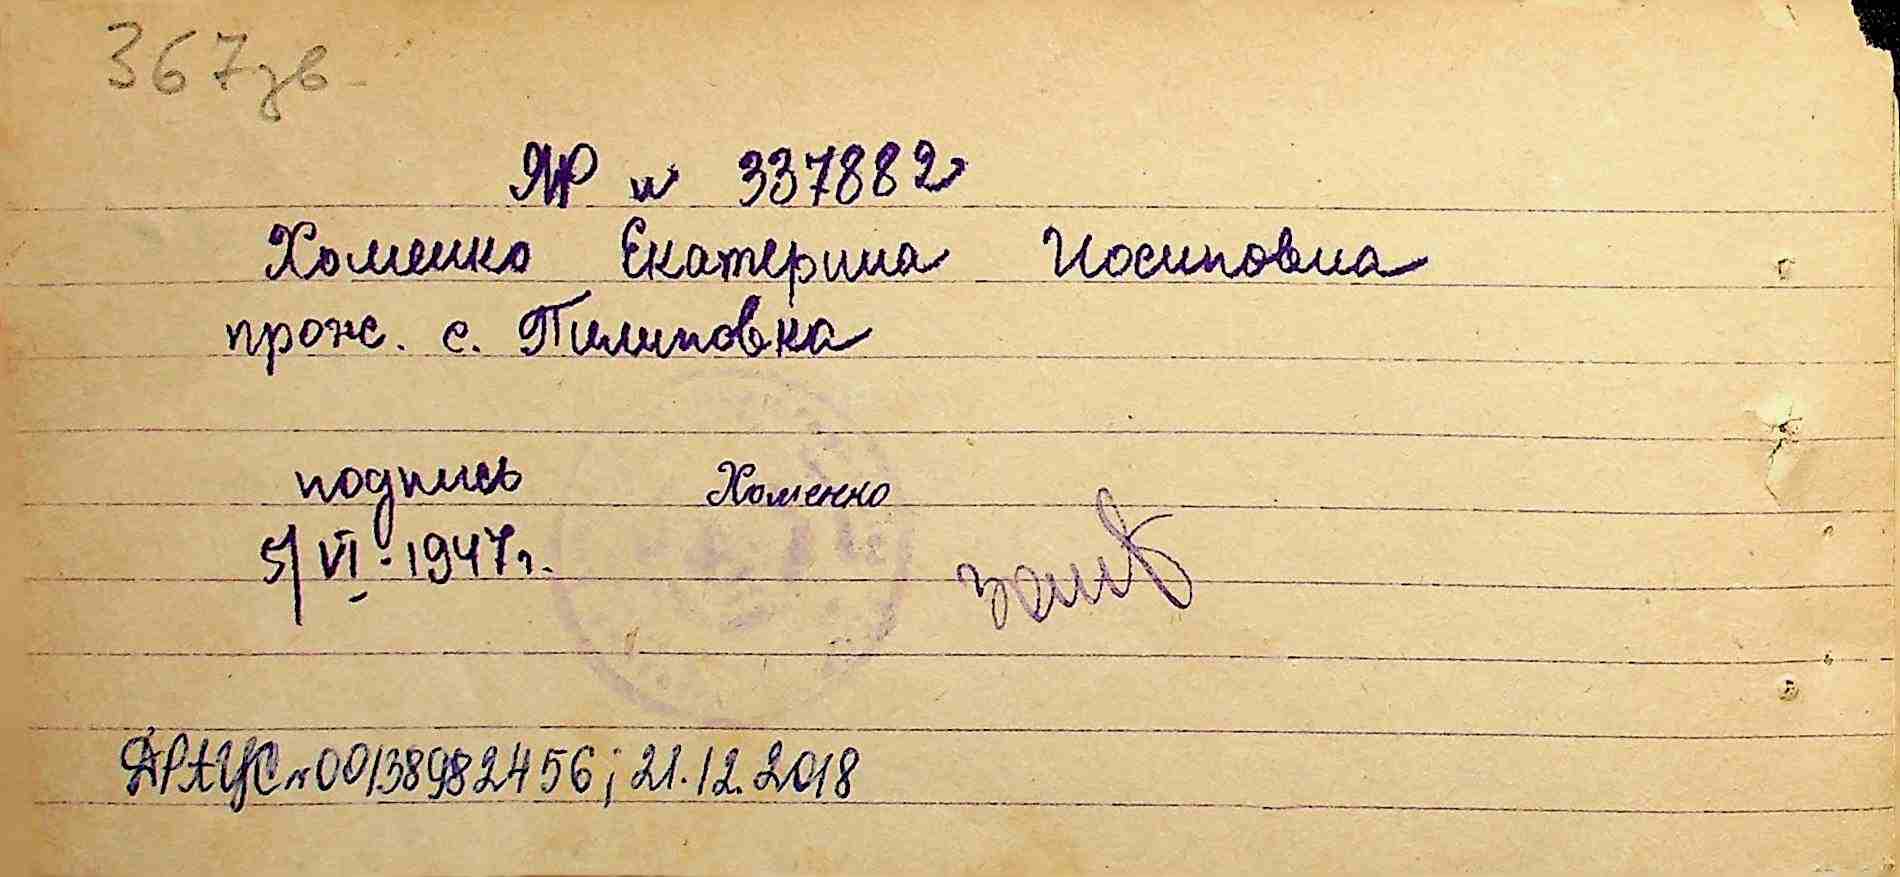 367зв.
ЯР № 337882
Хоменко Екатерина Иосиповна
прож. с. Пилиповка
подпись Хоменко
5/VI - 1947 г.
ДРАЦС № 00138982456; 21.12.2018